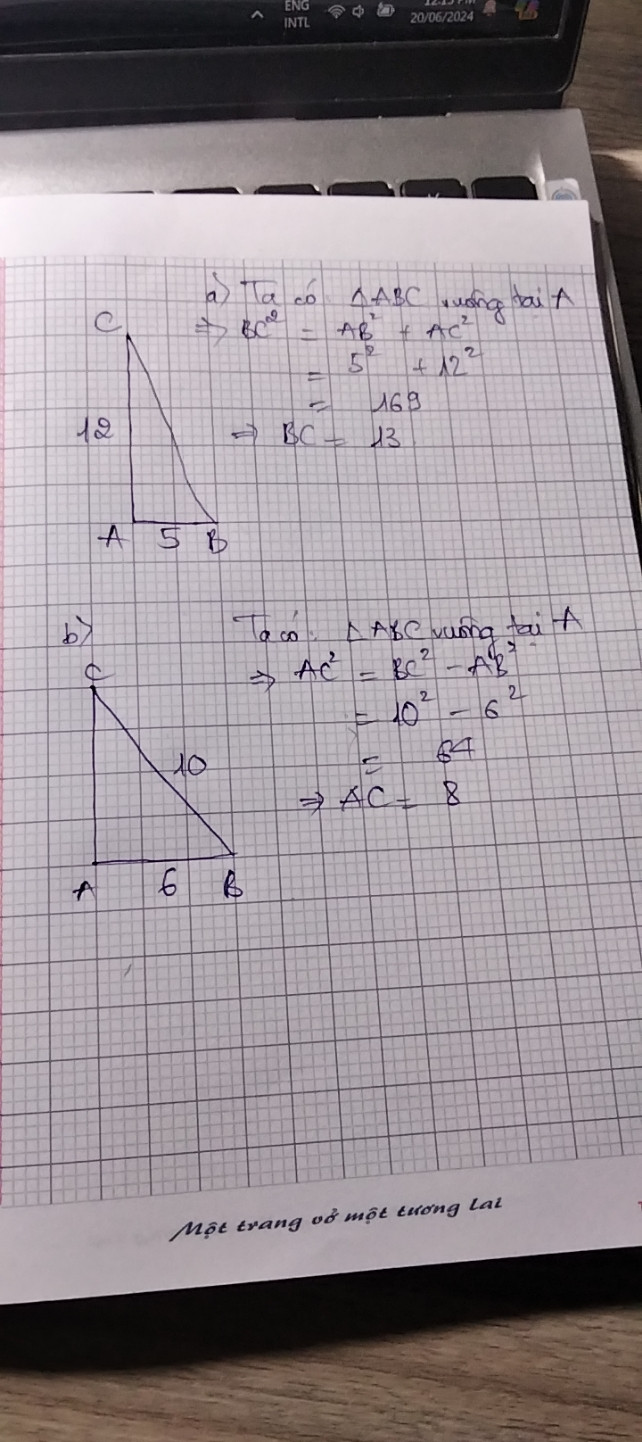 ENG
INTL
20/06/2024
a) Ta có ΔABC vuông tại A
C
⇒ BC² = AB² + AC²
= 5² + 12²
= 169
12
⇒ BC = 13
A 5 B
b) Ta có: ΔABC vuông tại A
C
⇒ AC² = BC² - AB²
= 10² - 6²
10
= 64
⇒ AC = 8
A 6 B
Một trang vở một tương lai